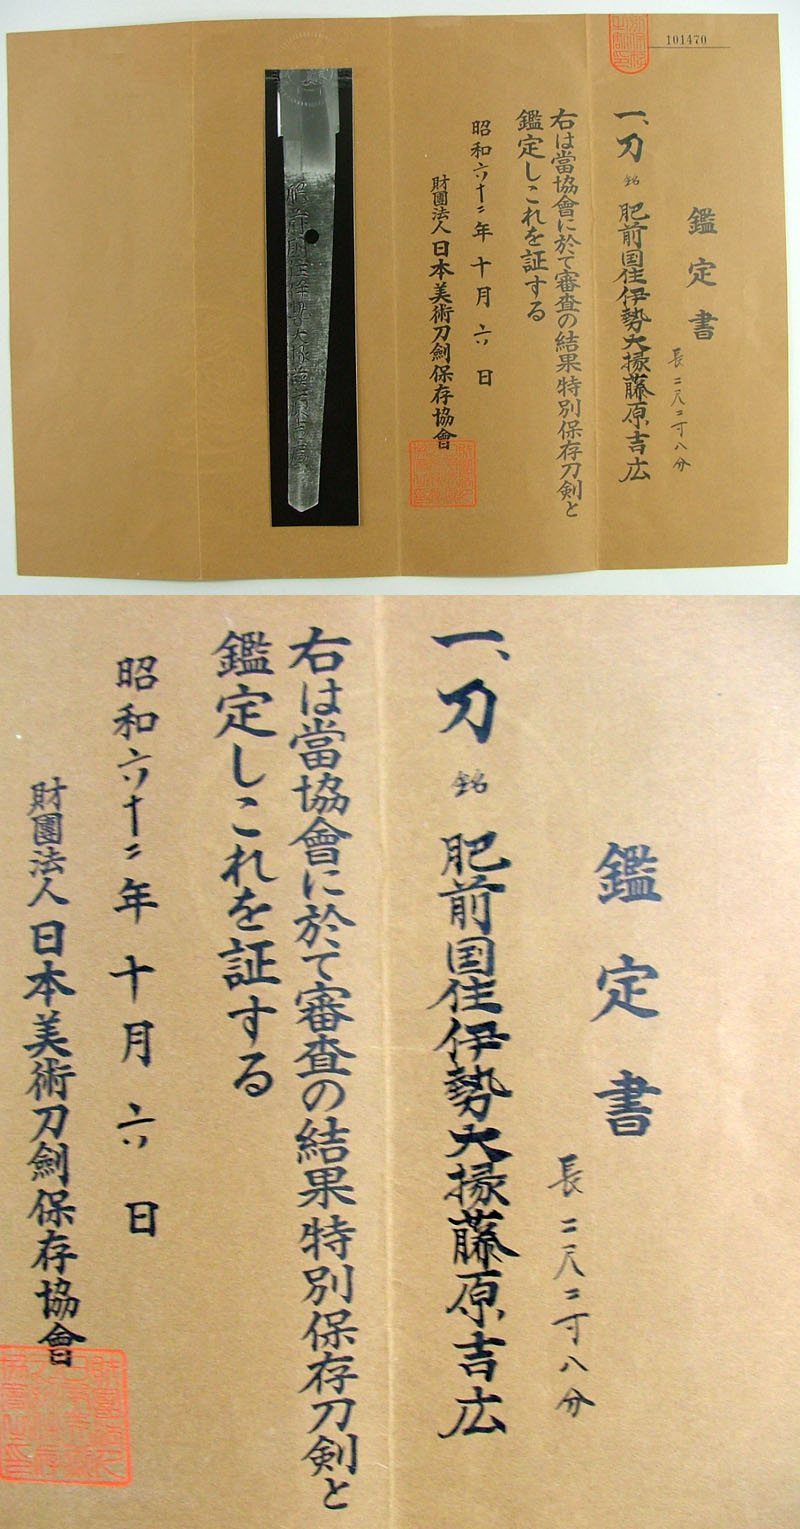 101470
鑑定書
長二尺二寸八分
一、刀 銘 肥前国住伊勢大掾藤原吉広
右は當協會に於て審査の結果特別保存刀剣と
鑑定しこれを証する
昭和六十二年十月六日
財團法人日本美術刀劍保存協會
鑑定書
長二尺二寸八分
一、刀 銘 肥前国住伊勢大掾藤原吉広
右は當協會に於て審査の結果特別保存刀剣と
鑑定しこれを証する
昭和六十二年十月六日
財團法人日本美術刀劍保存協會